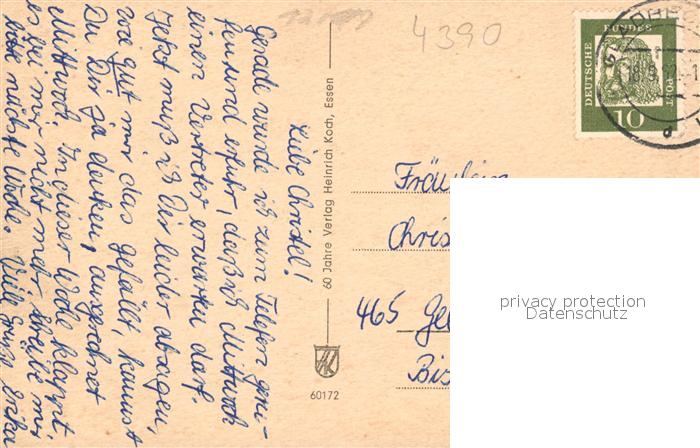 4390
DEUTSCHE
BUNDES
POST
10
Liebe Christel!
Gerade wurde ich zum Telefon geru-
fen und erfuhr, daß ich Mittwoch
einen Vertreter erwarten darf.
Jetzt muß ich Dir leider absagen,
wie gut mir das gefällt, kannst
Du Dir ja denken, ausgerechnet
Mittwoch. In dieser Woche klappt
es bei mir nicht mehr, schreibe mir
bitte nächste Woche. Viele Grüße
60 Jahre Verlag Heinrich Koch, Essen
HK
60172
Fräulein
Chris
465 Gel
Bis
privacy protection
Datenschutz